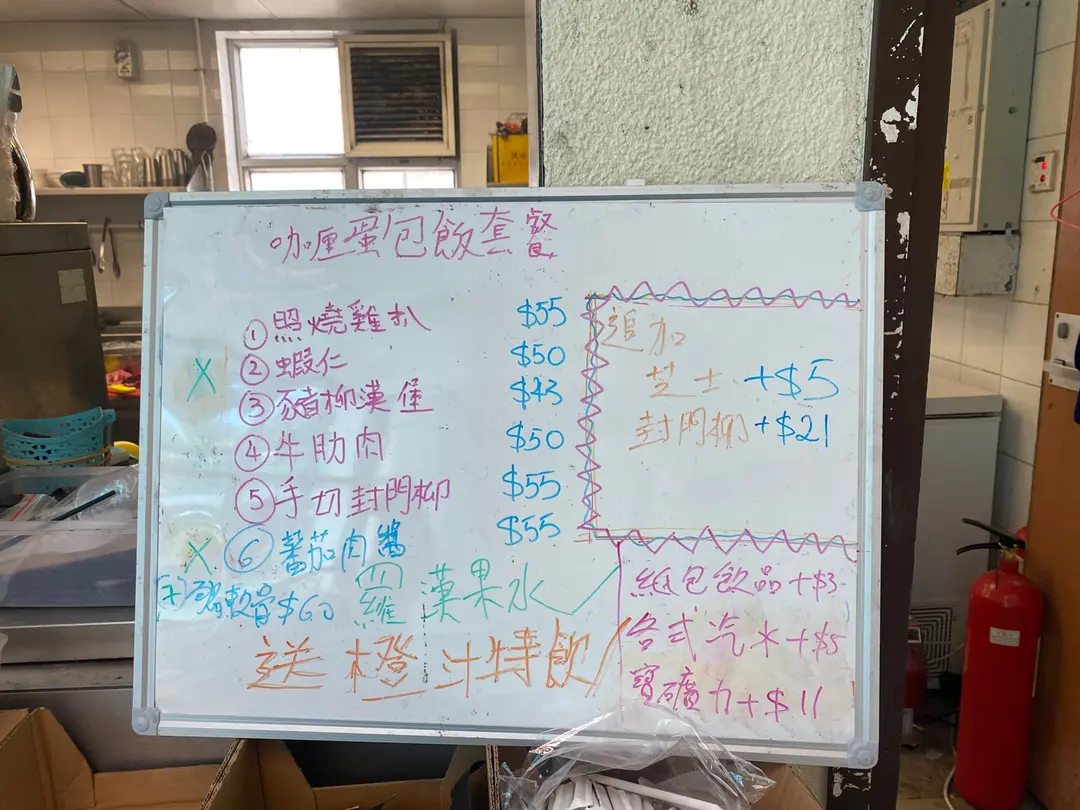 咖厘蛋包飯套餐
① 照燒雞扒 $55
X ② 蝦仁 $50
③ 豬柳漢堡 $43
④ 牛肋肉 $50
⑤ 手切封門柳 $55
X ⑥ 蕃茄肉醬 $55
豬軟骨 $60
羅漢果水
送橙汁特飲
追加
芝士 +$5
封門柳 +$21
紙包飲品 +$3
各式汽水 +$5
寶礦力 +$11